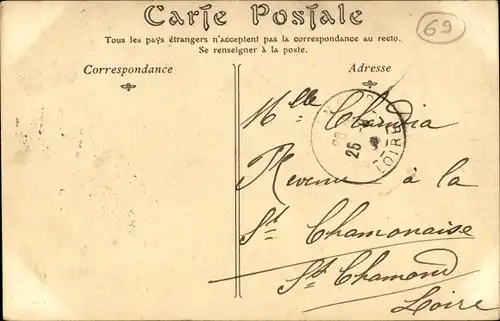 Carte Postale
69
Tous les pays étrangers n'acceptent pas la correspondance au recto.
Se renseigner à la poste.
Correspondance
Adresse
Mlle Claudia
25
LOIRE
Revenu à la
St Chamonaise
St Chamond
Loire